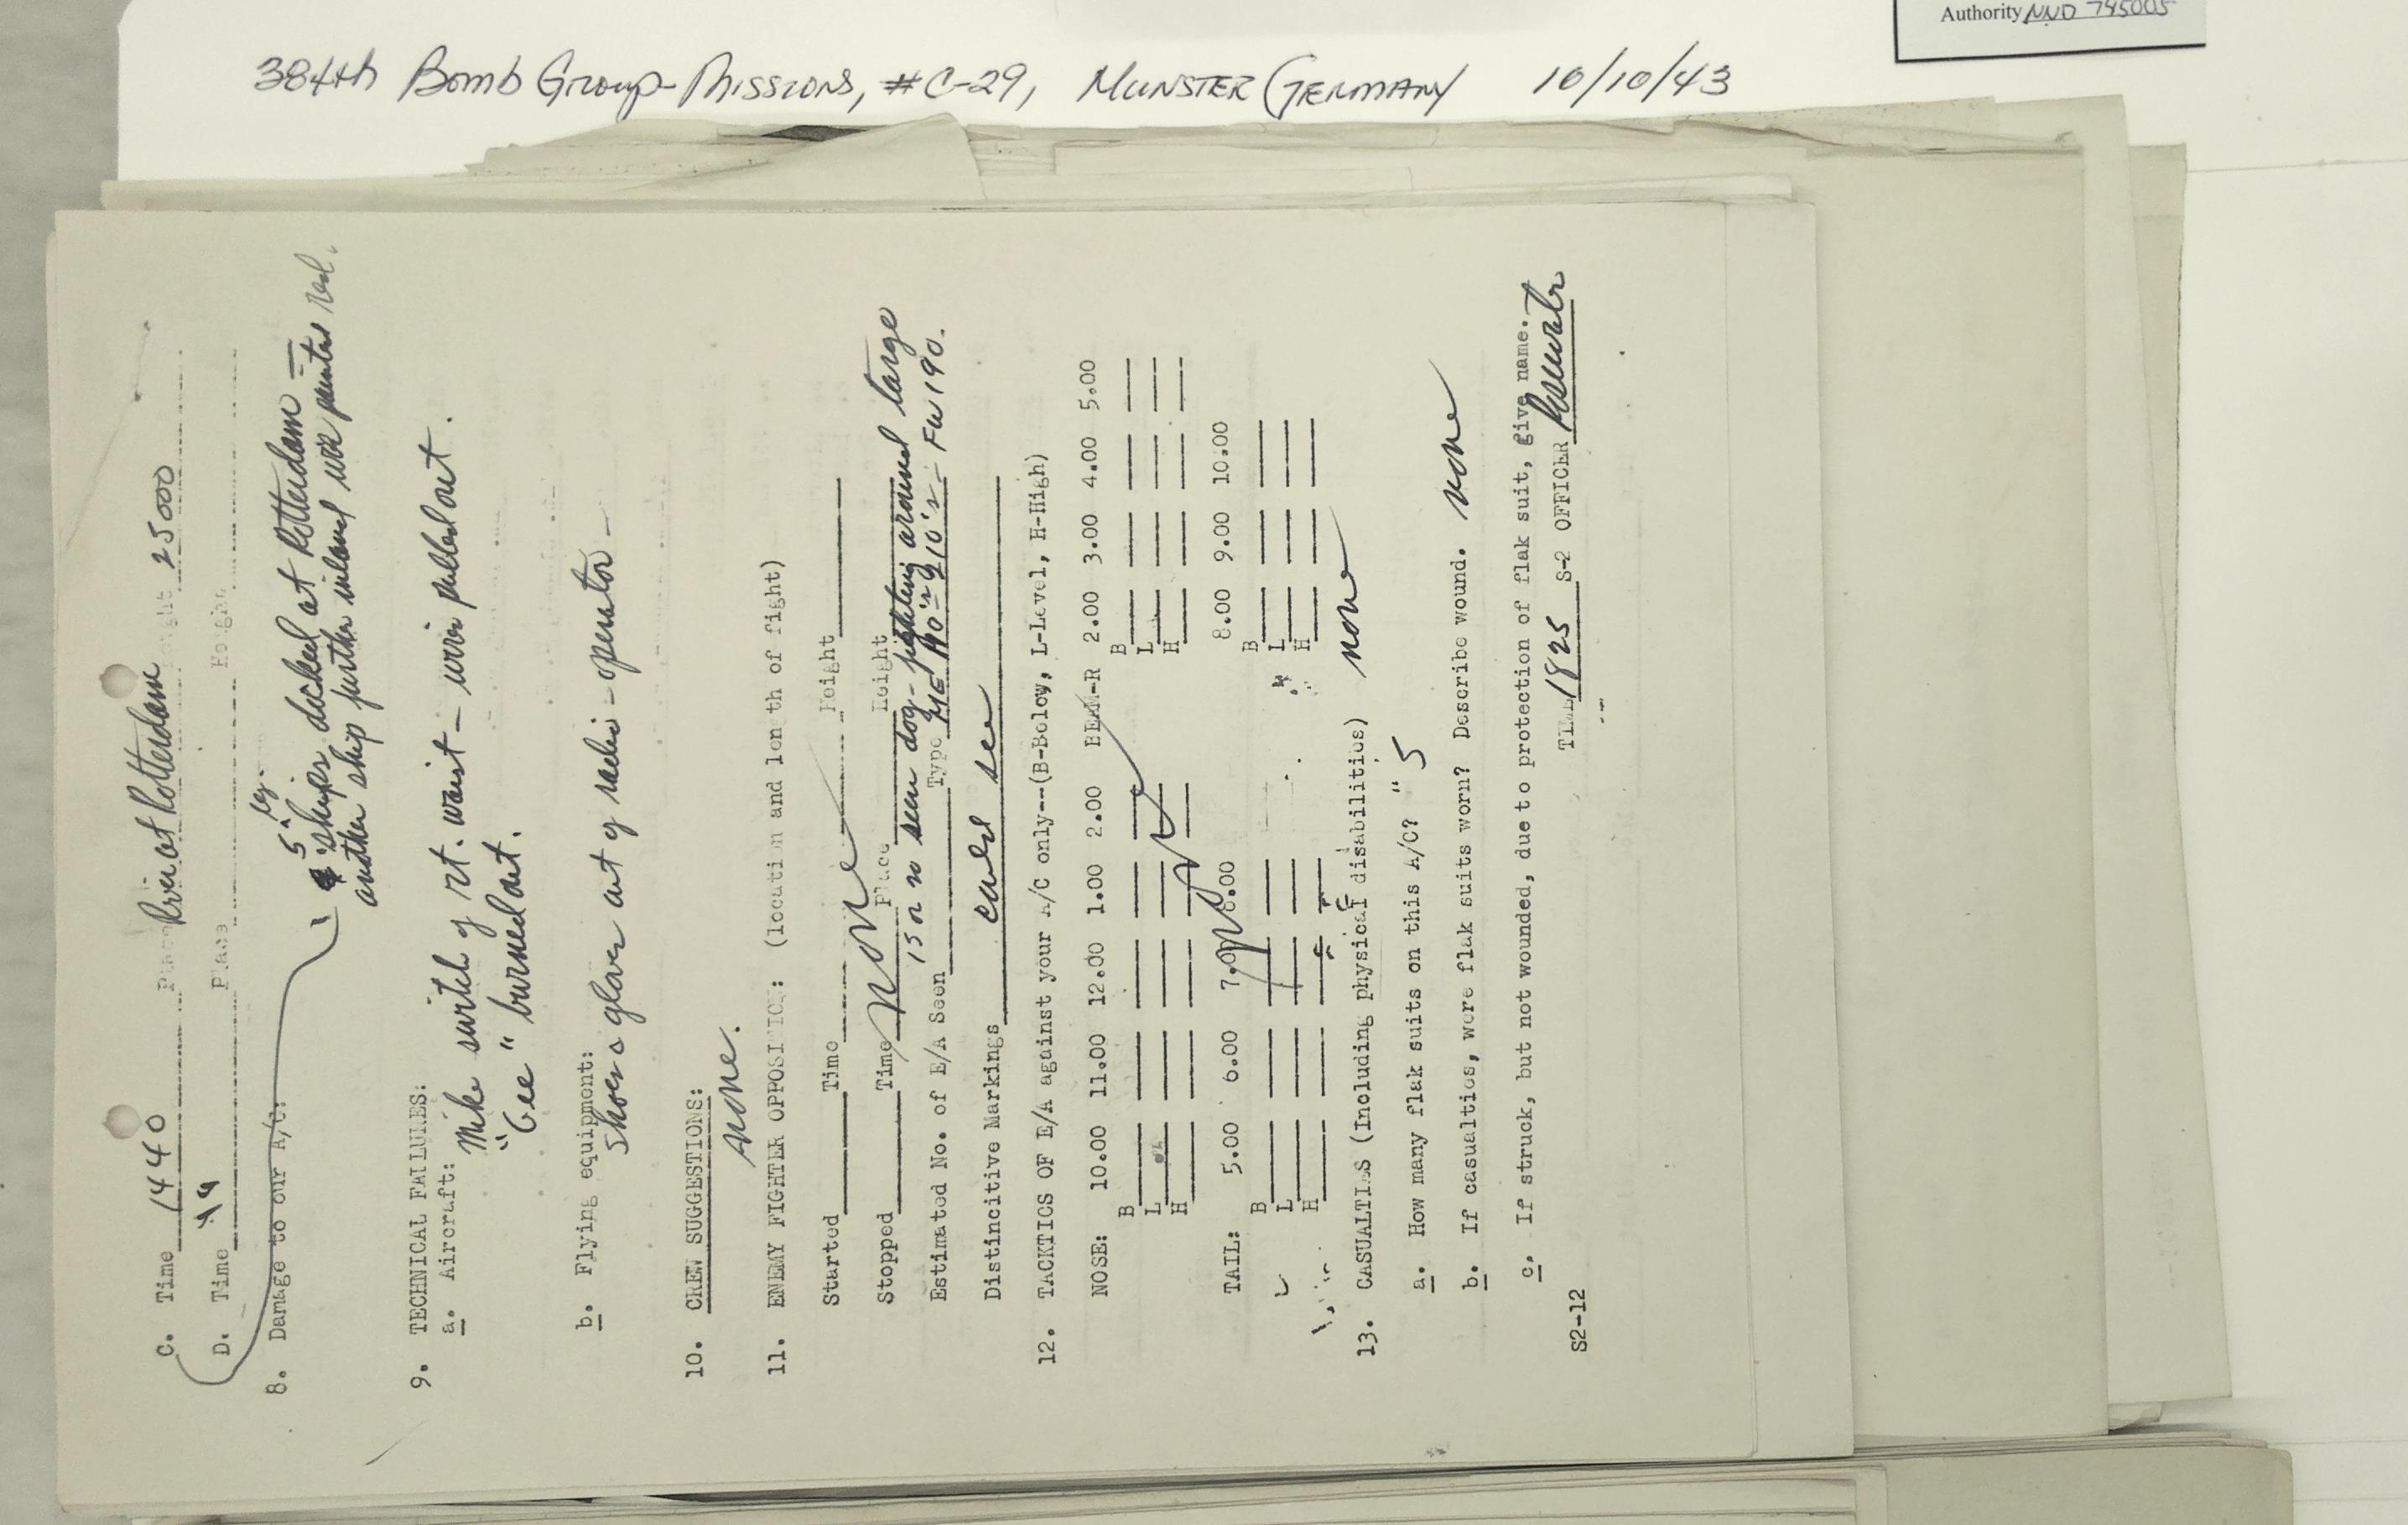 Authority NND 745005
384th Bomb Group-Missions, #C-29, MUNSTER GERMANY 10/10/43
C. Time 1440 Place River at Rotterdam Height 25000
D. Time Place Height
5 lg.
ships docked at Rotterdam —
another ship further inland was painted red.
8. Damage to our A/C:
9. TECHNICAL FAILURES:
a. Aircraft: Mike switch of rt. waist – wire pulled out.
"Gee" burned out.
b. Flying equipment:
Shoes & gloves out of radio-operator –
10. CREW SUGGESTIONS:
none.
11. ENEMY FIGHTER OPPOSITION: (location and length of fight)
Started Time Height
Stopped Time none Place Height
15 or 20 seen dog-fighting around large
Estimated No. of E/A Seen Type ME 110's 210's – FW 190.
Distincitive Markings could see
12. TACKTICS OF E/A against your A/C only--(B-Below, L-Level, H-High)
NOSE: 10.00 11.00 12.00 1.00 2.00 BEAM-R 2.00 3.00 4.00 5.00
B B
L L
H H
none
TAIL: 5.00 6.00 7.00 8.00 8.00 9.00 10.00
B B
L L
H H
13. CASUALTIES (Including physical disabilities) none
a. How many flak suits on this A/C? " 5
b. If casualties, were flak suits worn? Describe wound. none
c. If struck, but not wounded, due to protection of flak suit, give name.
S2-12 TIME 1825 S-2 OFFICER